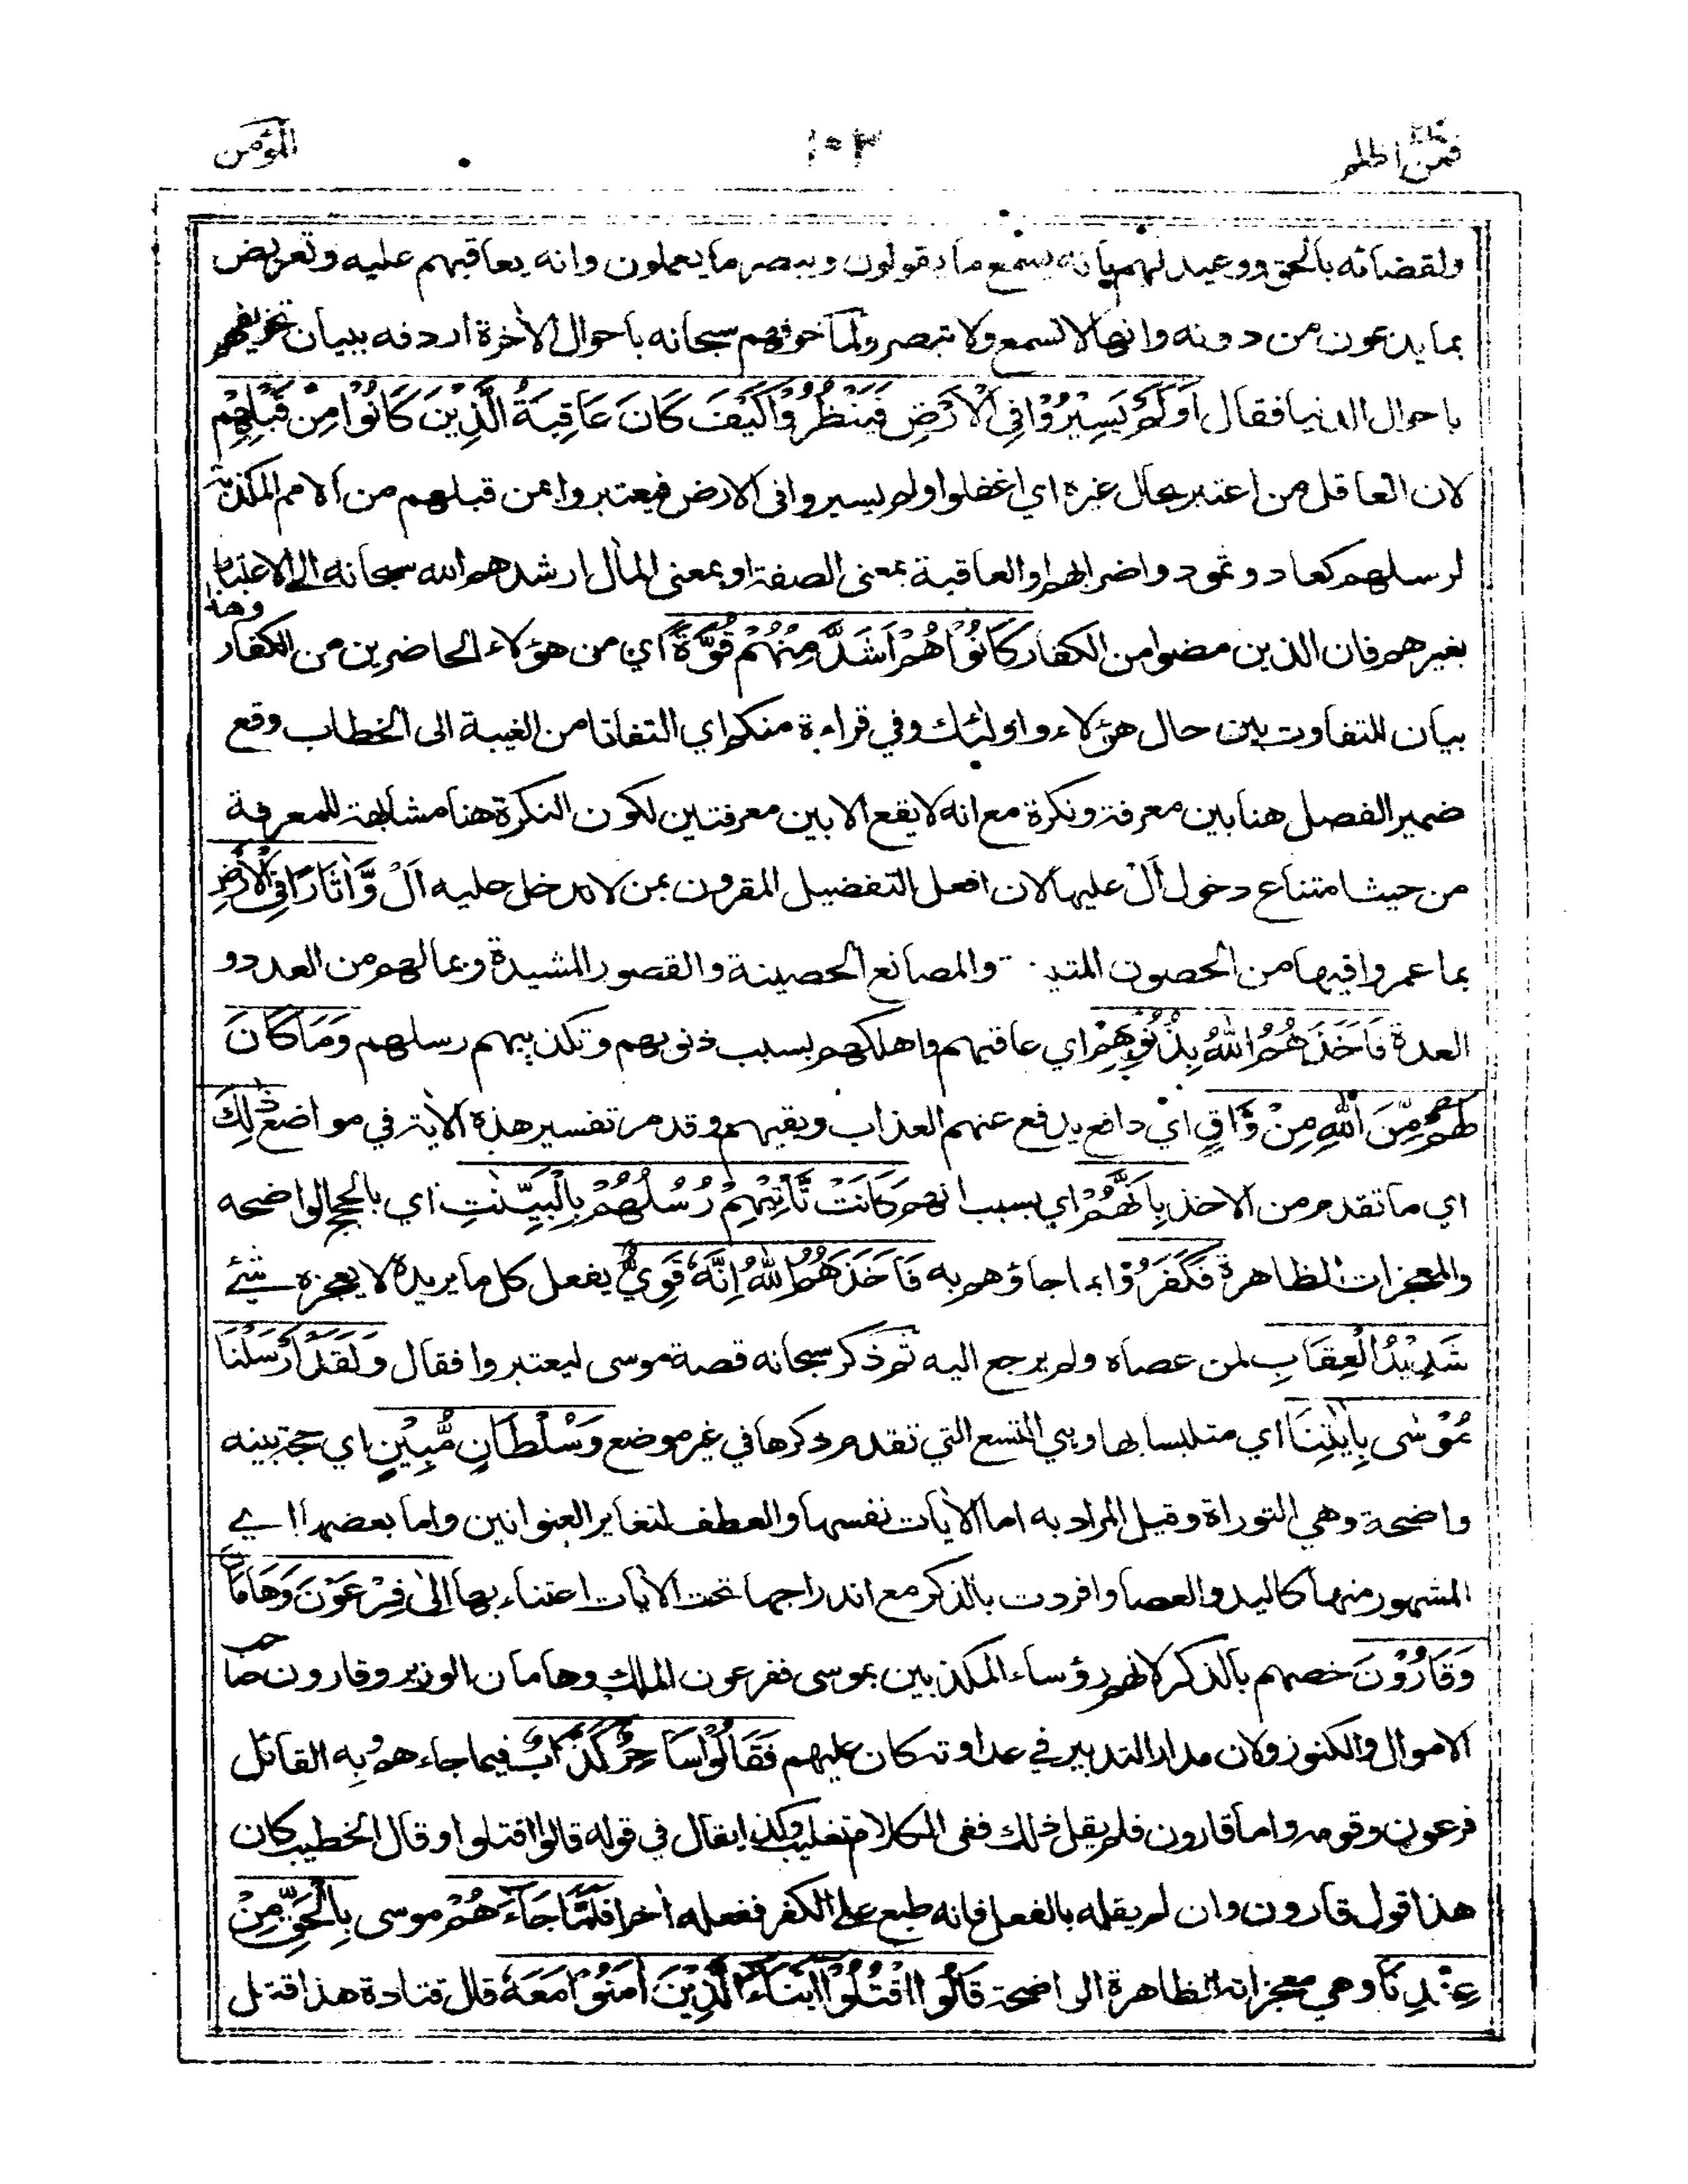 فمن اظلم ١٠٢ المؤمن
ولقضائه بالحق ووعيد لهم بانه يسمع ما يقولون ويبصر ما يعملون وانه يعاقبهم عليه وتعريض
بما يدعون من دونه وانها لا تسمع ولا تبصر ولما خوفهم سبحانه باحوال الاٰخرة اردفه ببيان تخويفهم
باحوال الدنيا فقال اَوَلَمْ يَسِيْرُوْا فِي الْاَرْضِ فَيَنْظُرُوْا كَيْفَ كَانَ عَاقِبَةُ الَّذِيْنَ كَانُوْا مِنْ قَبْلِهِمْ
لان العاقل من اعتبر بحال غيره اي اغفلوا ولم يسيروا فى الارض فيعتبروا بمن قبلهم من الامم المكذبة
لرسلهم كعاد وثمود واضرابهم والعاقبة بمعنى الصفة او بمعنى المآل ارشدهم الله سبحانه الى الاعتبار
بغيرهم فان الذين مضوا من الكفار كَانُوْا هُمْ اَشَدَّ مِنْهُمْ قُوَّةً اي من هؤلاء الحاضرين من الكفار وهذا
بيان للتفاوت بين حال هؤلاء واولٰئك وفي قراءة منكم اي التفاتا من الغيبة الى الخطاب وقع
ضمير الفصل هنا بين معرفة ونكرة مع انه لا يقع الا بين معرفتين لكون النكرة هنا مشابهة للمعرفة
من حيث امتناع دخول اَلْ عليها لان افعل التفضيل المقرون بمن لا تدخل عليه اَلْ وَّاٰثَارًا فِي الْاَرْضِ
بما عمروا فيها من الحصون المتينة والمصانع الحصينة والقصور المشيدة وبما لهم من العدد و
العدة فَاَخَذَهُمُ اللهُ بِذُنُوْبِهِمْ اي عاقبهم واهلكهم بسبب ذنوبهم وتكذيبهم رسلهم وَمَا كَانَ
لَهُمْ مِّنَ اللهِ مِنْ وَّاقٍ اي دافع يدفع عنهم العذاب ويقيهم وقد مر تفسير هذه الاٰية في مواضع ذٰلِكَ
اي ما تقدم من الاخذ بِاَنَّهُمْ اي بسبب انهم كَانَتْ تَّاْتِيْهِمْ رُسُلُهُمْ بِالْبَيِّنٰتِ اي بالحجج الواضحه
والمعجزات الظاهرة فَكَفَرُوْا بما جاؤهم به فَاَخَذَهُمُ اللهُ اِنَّهٗ قَوِيٌّ يفعل كل ما يريده لا يعجزه شيئ
شَدِيْدُ الْعِقَابِ لمن عصاه ولم يرجع اليه ثم ذكر سبحانه قصة موسى ليعتبروا فقال وَلَقَدْ اَرْسَلْنَا
مُوْسٰى بِاٰيٰتِنَا اي متلبسا بها وهي التسع التي تقدم ذكرها في غير موضع وَسُلْطَانٍ مُّبِيْنٍ اي حجة بينه
واضحة وهي التوراة وقيل المراد به اما الاٰيات نفسها والعطف لتغاير العنوانين واما بعضها اي
المشهور منها كاليد والعصا وافردت بالذكر مع اندراجها تحت الاٰيات اعتناء بها اِلٰى فِرْعَوْنَ وَهَامَانَ
وَقَارُوْنَ خصهم بالذكر لانهم رؤساء المكذبين بموسى ففرعون الملك وهامان الوزير وقارون صاحب
الاموال والكنوز ولان مدار التدبير في عداوته كان عليهم فَقَالُوْا سَاحِرٌ كَذَّابٌ فيما جاءهم به القائل
فرعون وقومه واما قارون فلم يقل ذلك ففى الكلام تغليب وكذا يقال في قوله قالوا اقتلوا وقال الخطيب كان
هذا قول قارون وان لم يقله بالفعل فانه طبع على الكفر ففعله اٰخرا فَلَمَّا جَاءَهُمْ موسى بِالْحَقِّ مِنْ
عِنْدِنَا وهي معجزاته الظاهرة الواضحة قَالُوا اقْتُلُوْا اَبْنَاءَ الَّذِيْنَ اٰمَنُوْا مَعَهٗ قال قتادة هذا قتل